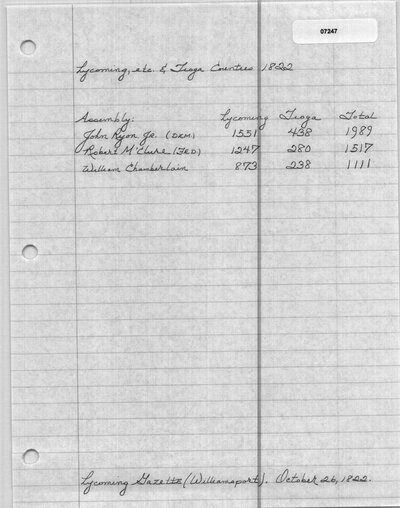 07247
Lycoming, etc. & Tioga Counties 1822
Assembly: Lycoming Tioga Total
John Ryon Jr. (DEM) 1551 438 1989
Robert M'Clure (FED) 1247 280 1517
William Chamberlain 873 238 1111
Lycoming Gazette (Williamsport). October 26, 1822.